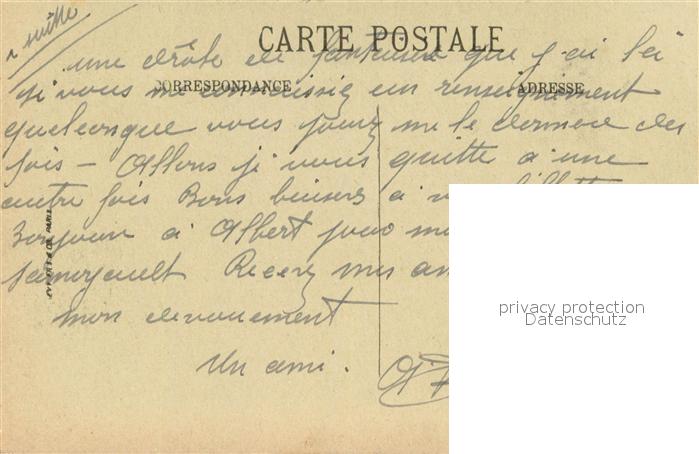 suitte
CARTE POSTALE
une drôle de fantaisie que j'ai lei
CORRESPONDANCE
ADRESSE
si vous me connaissiez un renseignement
quelconque vous pouvez me le donner des
fois – Allons je vous quitte a une
autre fois Bons baisers a
Bonjour a Albert pour
Recevez mes am
mon devouement
Un ami.
privacy protection
Datenschutz